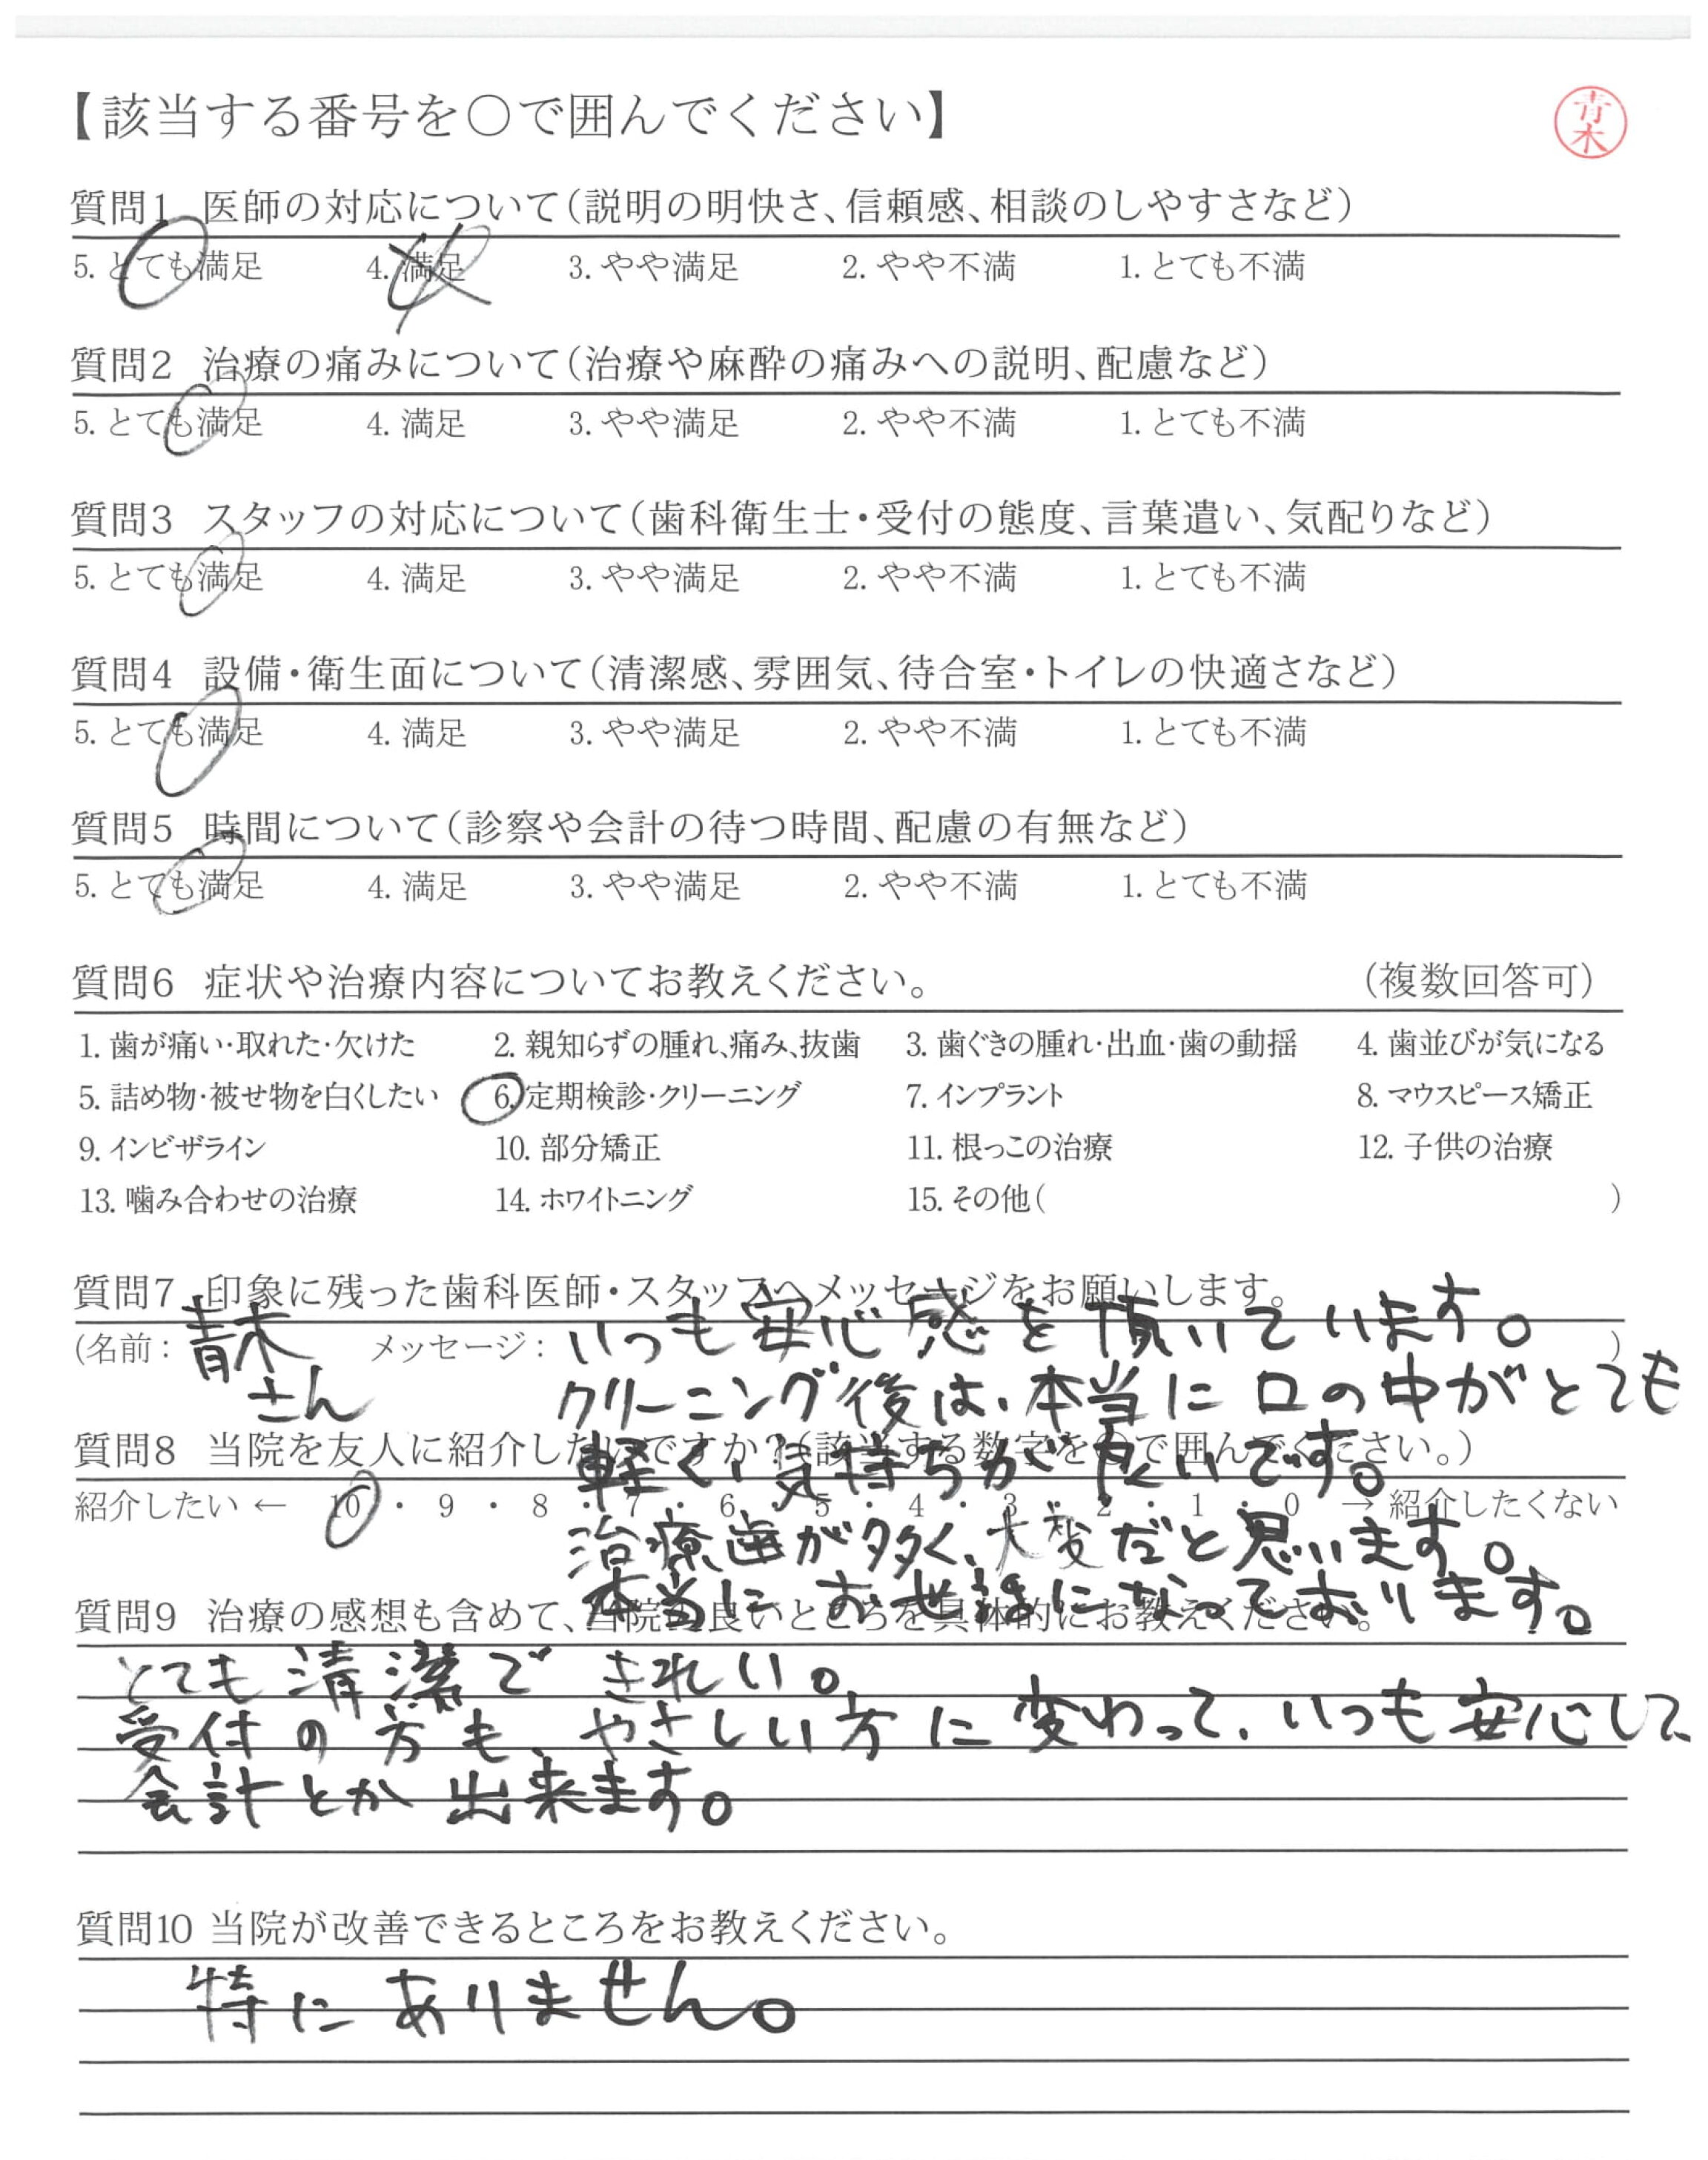 【該当する番号を○で囲んでください】
青木
質問1 医師の対応について（説明の明快さ、信頼感、相談のしやすさなど）
5. とても満足 4. 満足 3. やや満足 2. やや不満 1. とても不満
質問2 治療の痛みについて（治療や麻酔の痛みへの説明、配慮など）
5. とても満足 4. 満足 3. やや満足 2. やや不満 1. とても不満
質問3 スタッフの対応について（歯科衛生士・受付の態度、言葉遣い、気配りなど）
5. とても満足 4. 満足 3. やや満足 2. やや不満 1. とても不満
質問4 設備・衛生面について（清潔感、雰囲気、待合室・トイレの快適さなど）
5. とても満足 4. 満足 3. やや満足 2. やや不満 1. とても不満
質問5 時間について（診察や会計の待つ時間、配慮の有無など）
5. とても満足 4. 満足 3. やや満足 2. やや不満 1. とても不満
質問6 症状や治療内容についてお教えください。 （複数回答可）
1. 歯が痛い・取れた・欠けた 2. 親知らずの腫れ、痛み、抜歯 3. 歯ぐきの腫れ・出血・歯の動揺 4. 歯並びが気になる
5. 詰め物・被せ物を白くしたい 6. 定期検診・クリーニング 7. インプラント 8. マウスピース矯正
9. インビザライン 10. 部分矯正 11. 根っこの治療 12. 子供の治療
13. 噛み合わせの治療 14. ホワイトニング 15. その他（ ）
質問7 印象に残った歯科医師・スタッフへメッセージをお願いします。
（名前： 青木さん メッセージ： いつも安心感を頂いています。 ）
クリーニング後は、本当に口の中がとても
軽くい気持ちが良いです。
治療歯が多く、大変だと思います。
本当にお世話になっております。
質問8 当院を友人に紹介したいですか？（該当する数字を○で囲んでください。）
紹介したい ← 10 ・ 9 ・ 8 ・ 7 ・ 6 ・ 5 ・ 4 ・ 3 ・ 2 ・ 1 ・ 0 → 紹介したくない
質問9 治療の感想も含めて、当院の良いところを具体的にお教えください。
とても清潔できれい。
受付の方も、やさしい方に変わって、いつも安心して、
会計とか出来ます。
質問10 当院が改善できるところをお教えください。
特にありません。